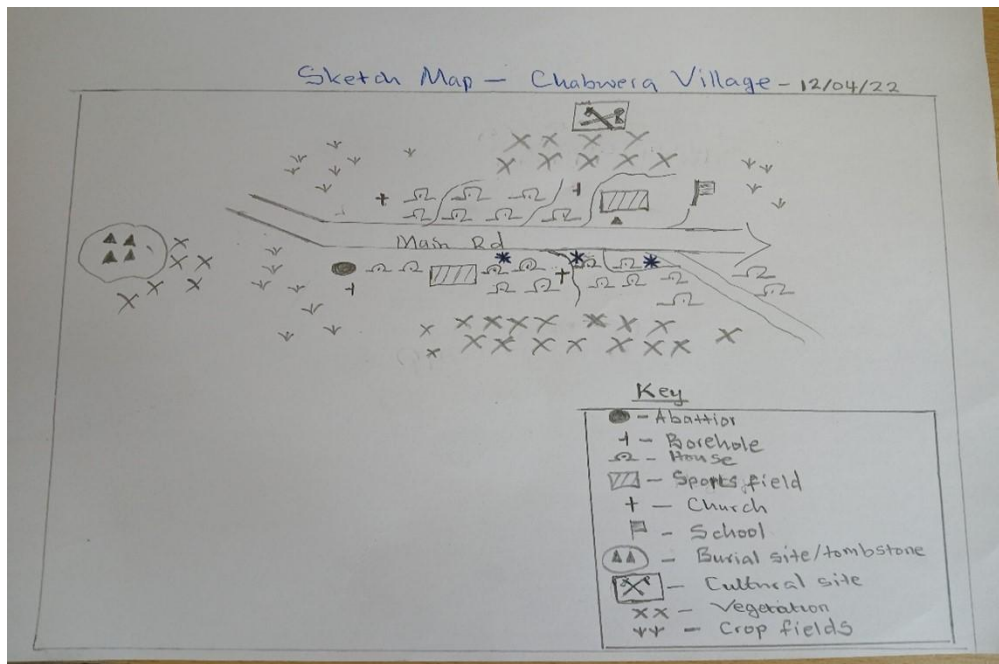 Sketch Map - Chabwera Village - 12/04/22
Main Rd
Key
- Abattior
- Borehole
- House
- Sports field
- Church
- School
- Burial site/tombstone
- Cultural site
- Vegetation
- Crop fields